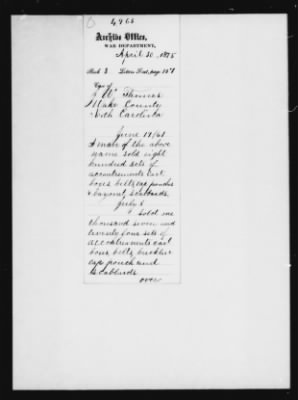 4965
Archive Office,
WAR DEPARTMENT,
April 30, 1875
Book 3 Letters Sent, page
Copy of
J W
Wake County
North Carolina
June 19/61
A man of the above
name sold eight
hundred sets of
accoutrements cart
boxes belts cap pouches
& bayonet scabbards.
July 8
sold one
thousand seven and
seventy four sets of
accoutrements cart
boxes belts buckles
cap pouch and
scabbards
over